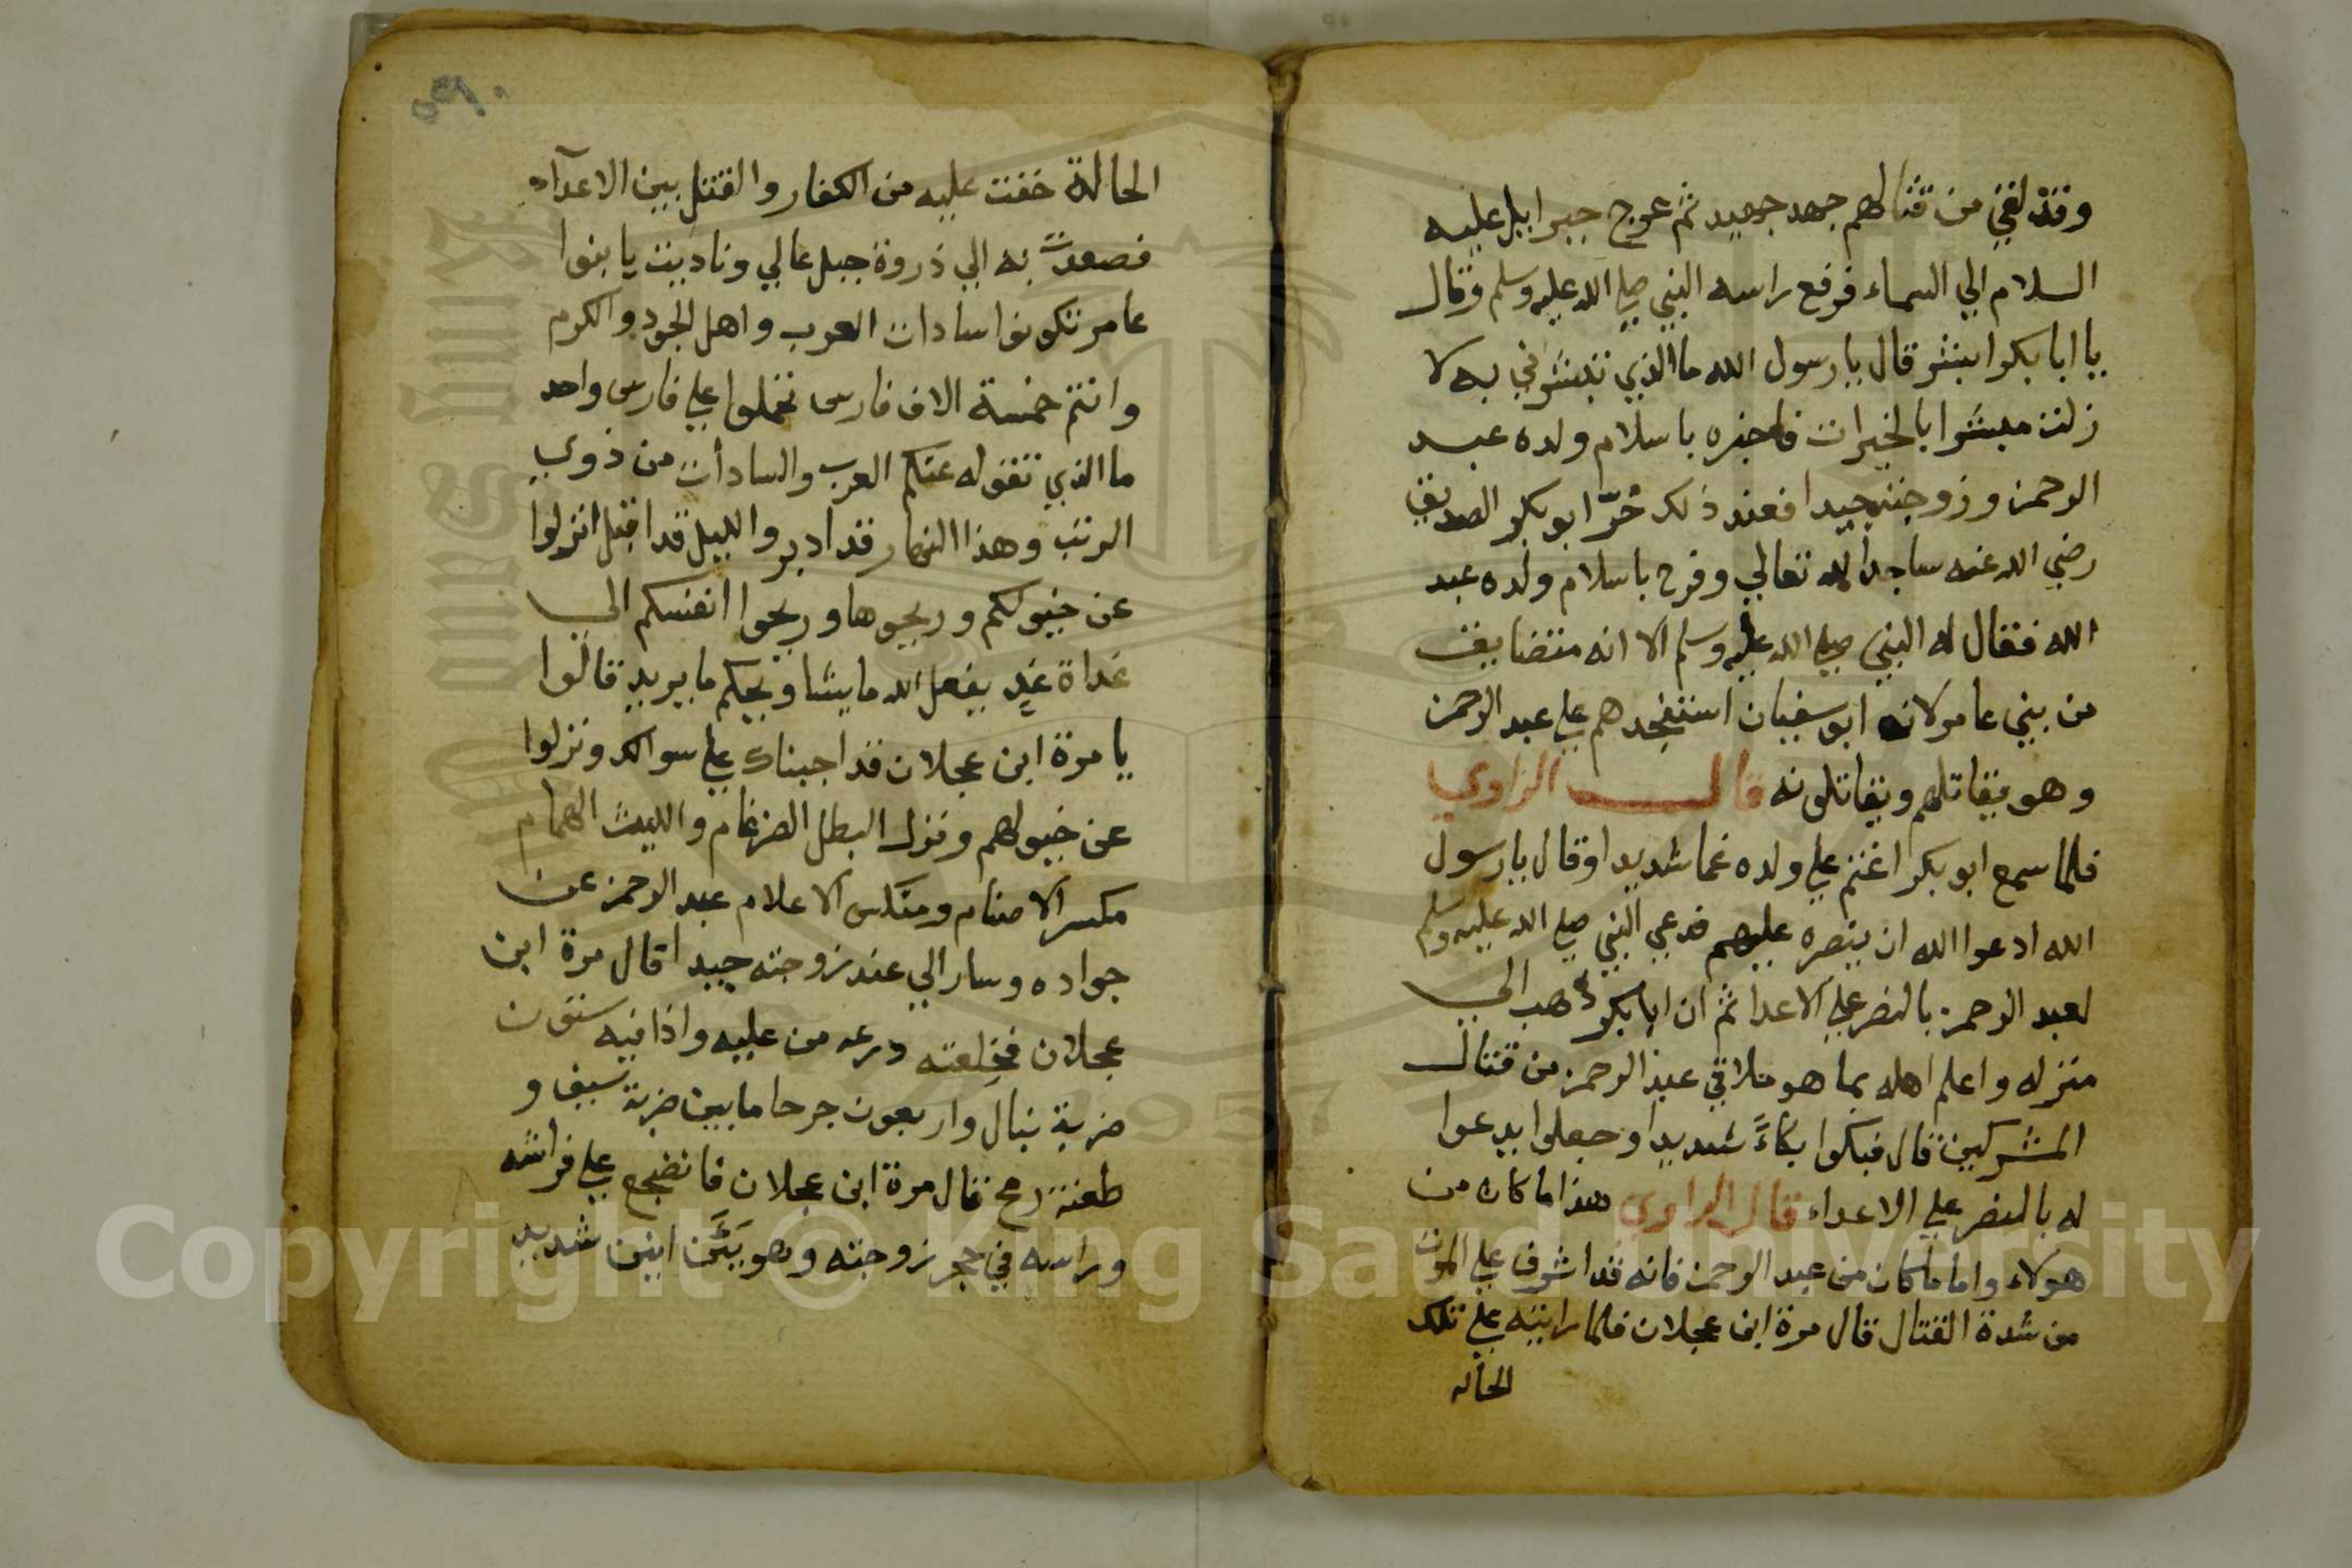 وقد لقي من قتالهم جهد جهيد ثم عرج جبرايل عليه
السلام الي السماء فرفع راسه النبي صلي الله عليه وسلم وقال
يا ابا بكر ابشر قال يا رسول الله ما الذي تبشرني به لا
زلت مبشرا بالخيرات فاخبره باسلام ولده عبد
الرحمن وزوجته جيدا فعند ذلك خرّ ابو بكر الصديق
رضي الله عنه ساجدا لله تعالي وفرح باسلام ولده عبد
الله فقال له النبي صلي الله عليه وسلم الا انه متضايق
من بني عامر لانه ابو سفيان استنجدهم علي عبد الرحمن
وهو يقاتلهم ويقاتلونه قال الراوي
فلما سمع ابو بكر اغتم علي ولده غما شديدا وقال يا رسول
الله ادعوا الله ان ينصره عليهم فدعي النبي صلي الله عليه وسلم
لعبد الرحمن بالنصر علي الاعدا ثم ان ابا بكر ذهب الي
منزله واعلم اهله بما هو ملاقي عبد الرحمن من قتال
المشركين قال فبكوا بكاءً شديدا وجعلوا يدعوا
له بالنصر علي الاعداء قال الراوي هذا ما كان من
هولاء واما ما كان من عبد الرحمن فانه قد اشرف علي الموت
من شدة القتال قال مرة ابن عجلان فلما رايته علي تلك
الحاله
٥٩٠
الحالة خفت عليه من الكفار والقتل بين الاعداء
فصعدت به الي ذروة جبل عالي وناديت يا بنوا
عامر تكونوا سادات العرب واهل الجود والكرم
وانتم خمسة الاف فارس تحملوا علي فارس واحد
ما الذي تقوله عنكم العرب والسادات من ذوي
الرتب وهذا النهار قد ادبر والليل قد اقبل انزلوا
عن خيولكم وريحوها وريحوا انفسكم الي
غداة غدٍ يفعل الله ما يشا ويحكم ما يريد قالوا
يا مرة ابن عجلان قد اجبناك علي سوالك ونزلوا
عن خيولهم ونزل البطل الضرغام والليث الهمام
مكسر الاصنام ومنكس الاعلام عبد الرحمن عن
جواده وسار الي عند زوجته جيدا قال مرة ابن
عجلان فخلعته درعه من عليه واذا فيه ستون
ضربة نبال واربعون جرحا ما بين ضربة سيف و
طعنة رمح قال مرة ابن عجلان فانضجع علي فراشه
وراسه في حجر زوجته وهو يَئَن انين شديد
Copyright © King Saud University
King Saud University
1957